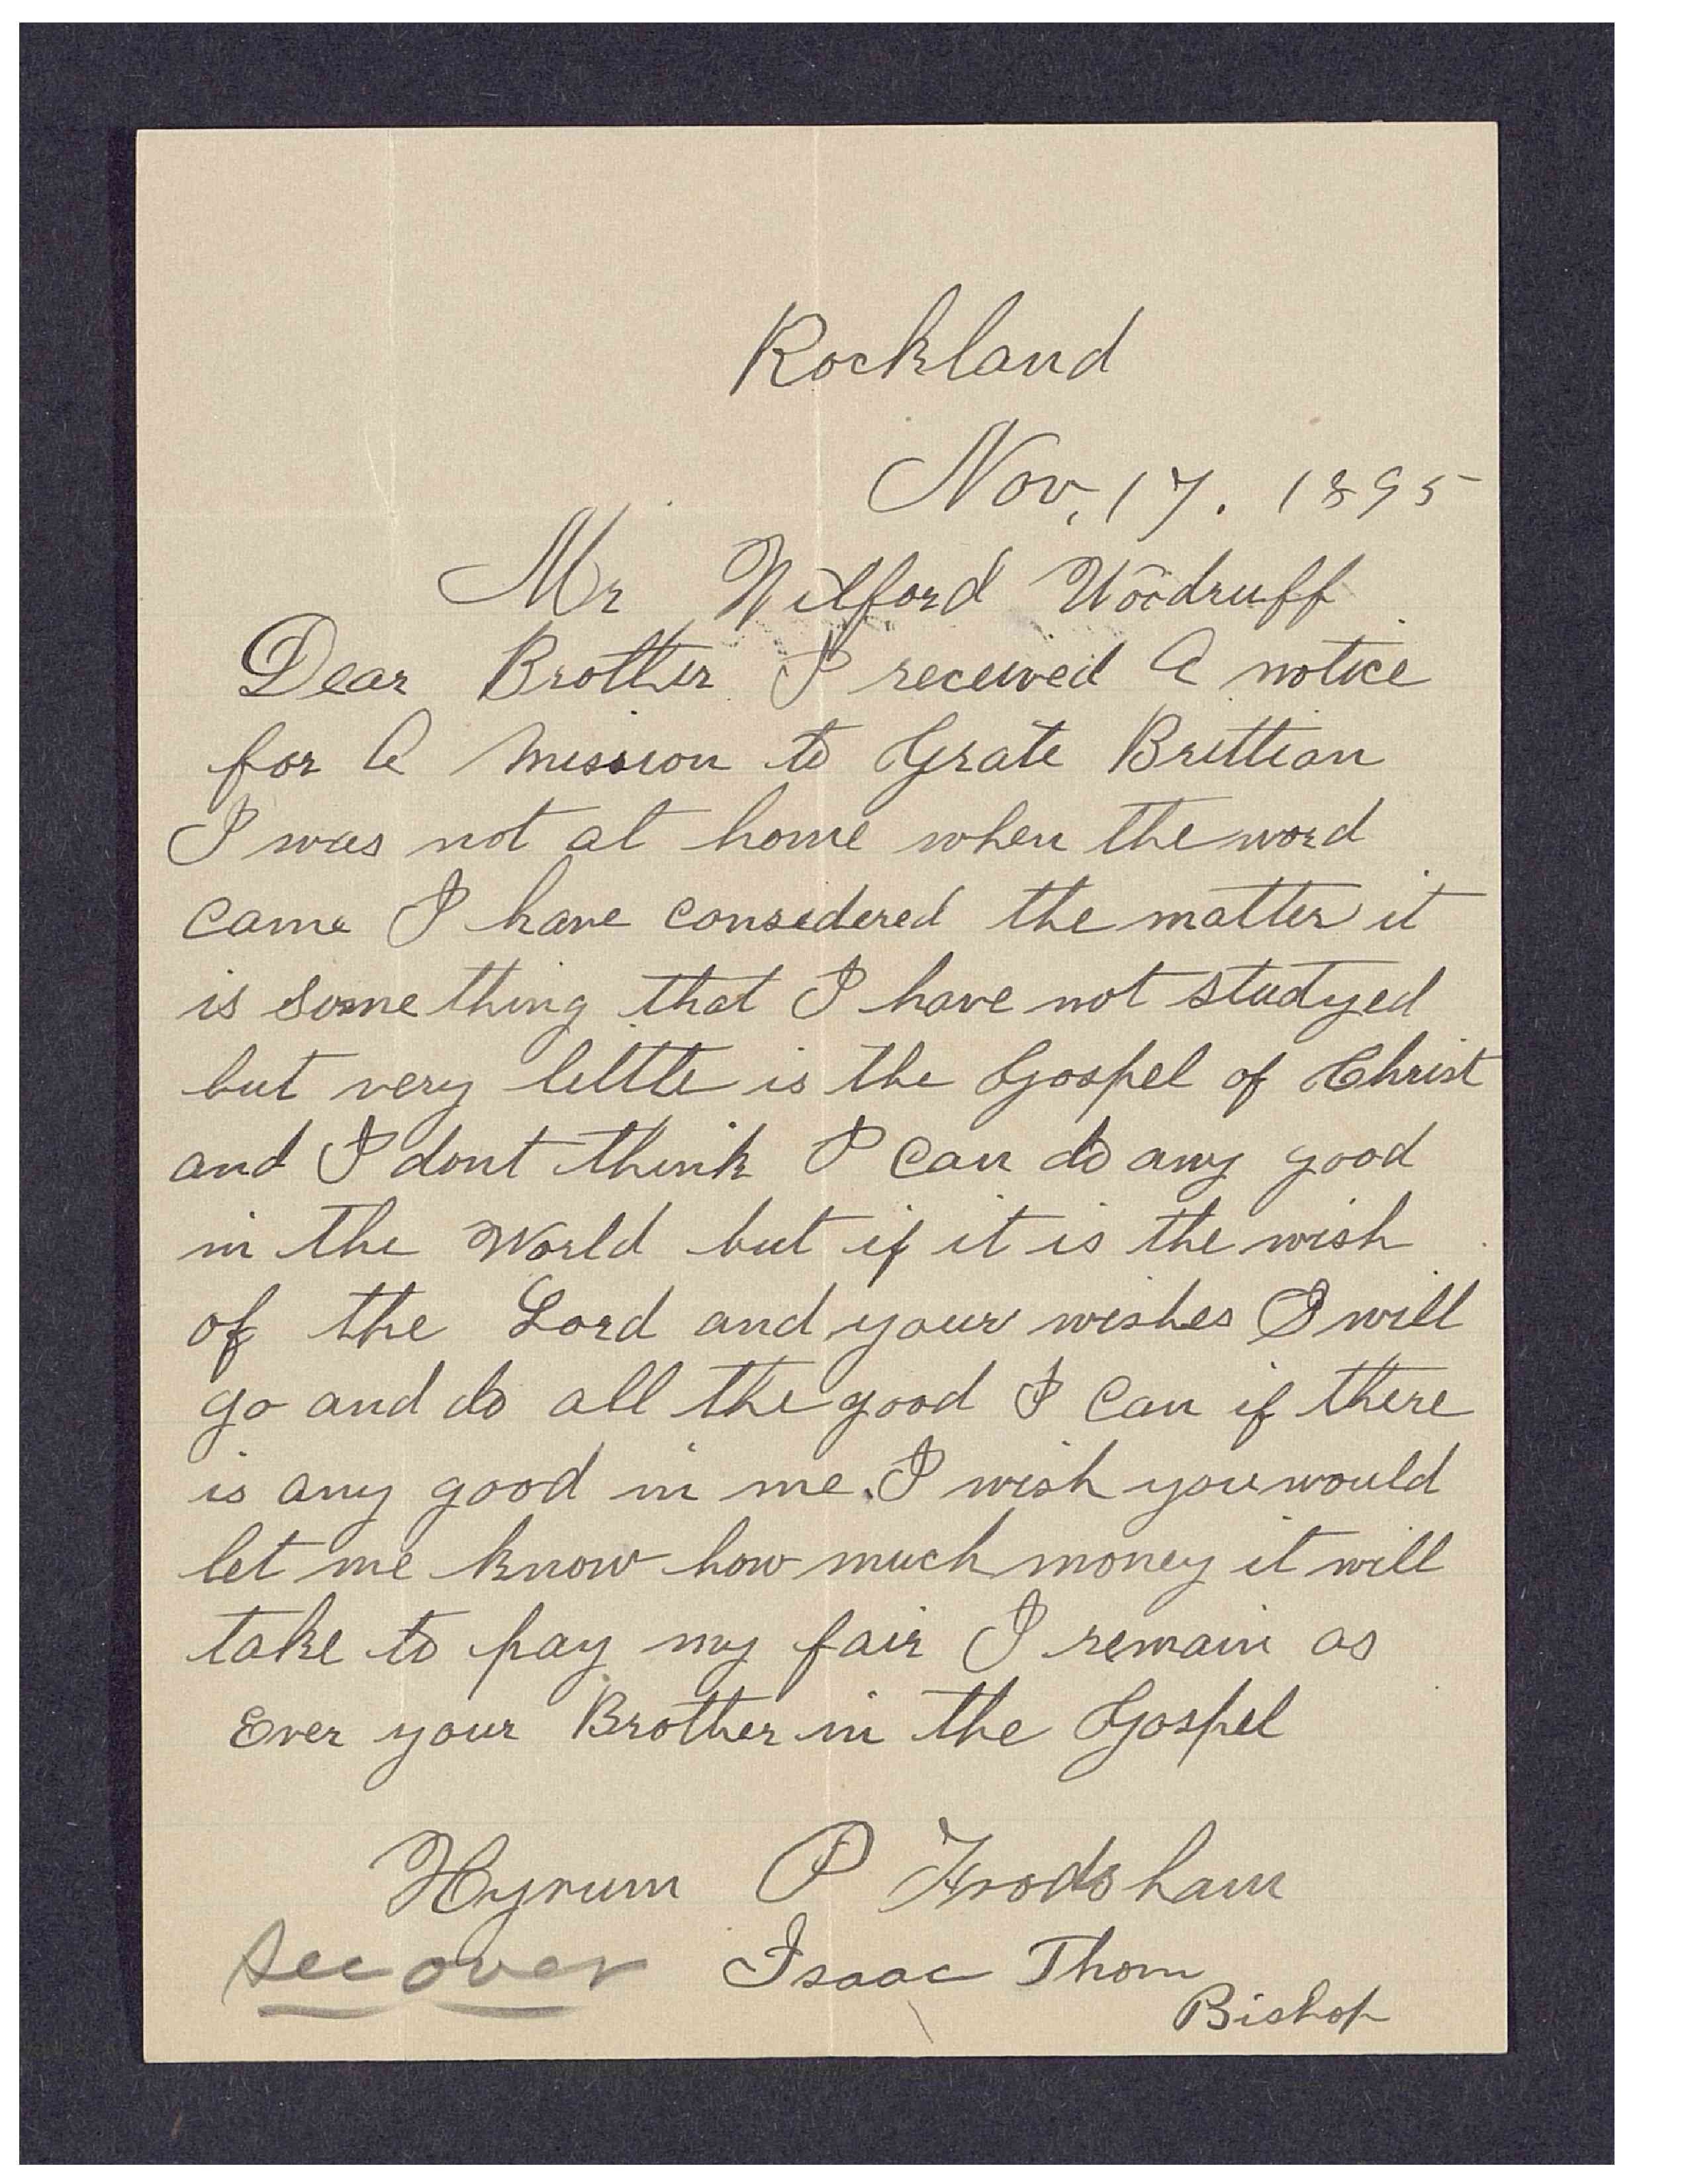 Rockland
Nov, 17. 1895
Mr Wilford Woodruff
Dear Brother I received A notice
for A mission to Grate Brittian
I was not at home when the word
came I have considered the matter it
is some thing that I have not studyed
but very little is the Gospel of Christ
and I dont think I can do any good
in the World but if it is the wish
of the Lord and your wishes I will
go and do all the good I can if there
is any good in me. I wish you would
let me know how much money it will
take to pay my fair I remain as
Ever your Brother in the Gospel
Hyrum P Frodsham
See over Isaac Thorn
Bishop